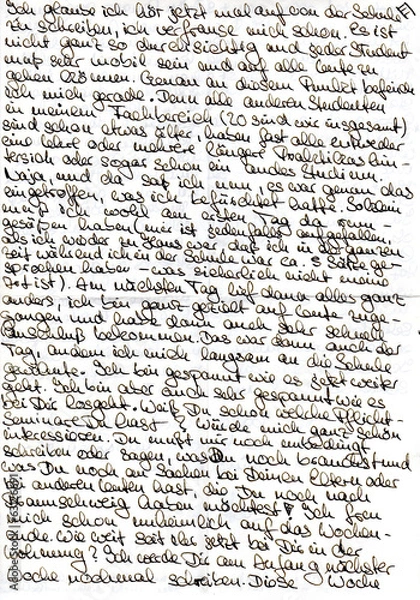 Ich glaube ich hör jetzt mal auf von der Schule
zu schreiben, ich verfranse mich schon. Es ist
nicht ganz so durchsichtig und jeder Student
muß sehr mobil sein und auf alle Leute zu
gehen können. Genau an diesem Punkt befinde
ich mich gerade. Denn alle anderen Studenten
in meinem Fachbereich (20 sind wir insgesamt)
sind schon etwas älter, haben fast alle entweder
eine Lehre oder mehrere längere Praktikas hin-
tersich oder sogar schon ein andes Studium.
Naja, und da saß ich nun, es war genau das
eingetroffen, was ich befürchtet hatte. Seltsam
muß ich wohl am ersten Tag da rum-
gesessen haben (mir ist jedenfalls aufgefallen,
als ich wieder zu Hause war, daß ich in der ganzen
Zeit während ich in der Schule war ca. 5 Sätze ge-
sprochen habe - was sicherlich nicht meine
Art ist). Am nächsten Tag lief dann alles ganz
anders, ich bin ganz gezielt auf Leute zuge-
gangen und habe dann auch sehr schnell
Anschluß bekommen. Das war dann auch der
Tag, an dem ich mich langsam an die Schule
gewöhnte. Ich bin gespannt wie es jetzt weiter
geht. Ich bin aber auch sehr gespannt wie es
bei Dir losgeht. Weißt Du schon welche Pflicht-
Seminare Du hast? Würde mich ganz schön
interessieren. Du mußt mir noch unbedingt
schreiben oder sagen, was Du noch brauchst und
was Du noch an Sachen bei Deinen Eltern oder
anderen Leuten hast, die Du noch nach
Braunschweig haben möchtest. Ich freu
mich schon unheimlich auf das Wochen-
ende. Wie weit seit ihr jetzt bei Dir in der
Wohnung? Ich werde Dir am Anfang nächster
Woche nochmal schreiben. Diese Woche
Adobe Stock